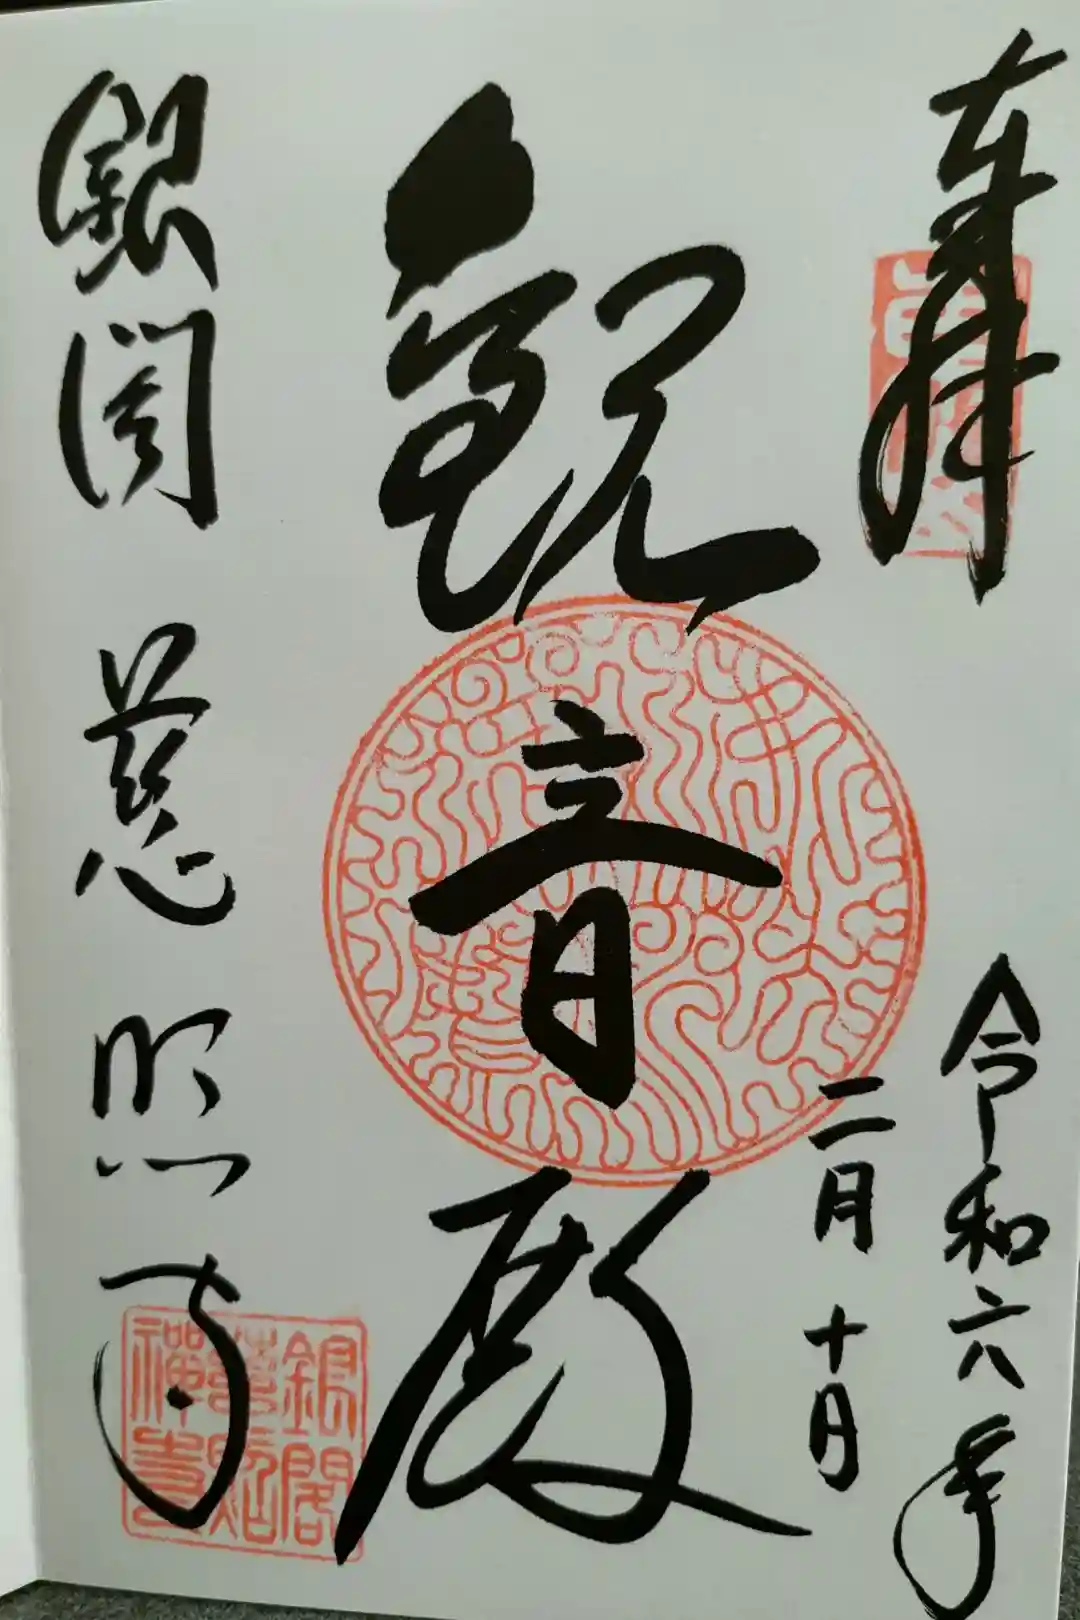 奉拝
令和六年
二月十日
観音殿
銀閣慈照寺
銀閣
慈照
禅寺